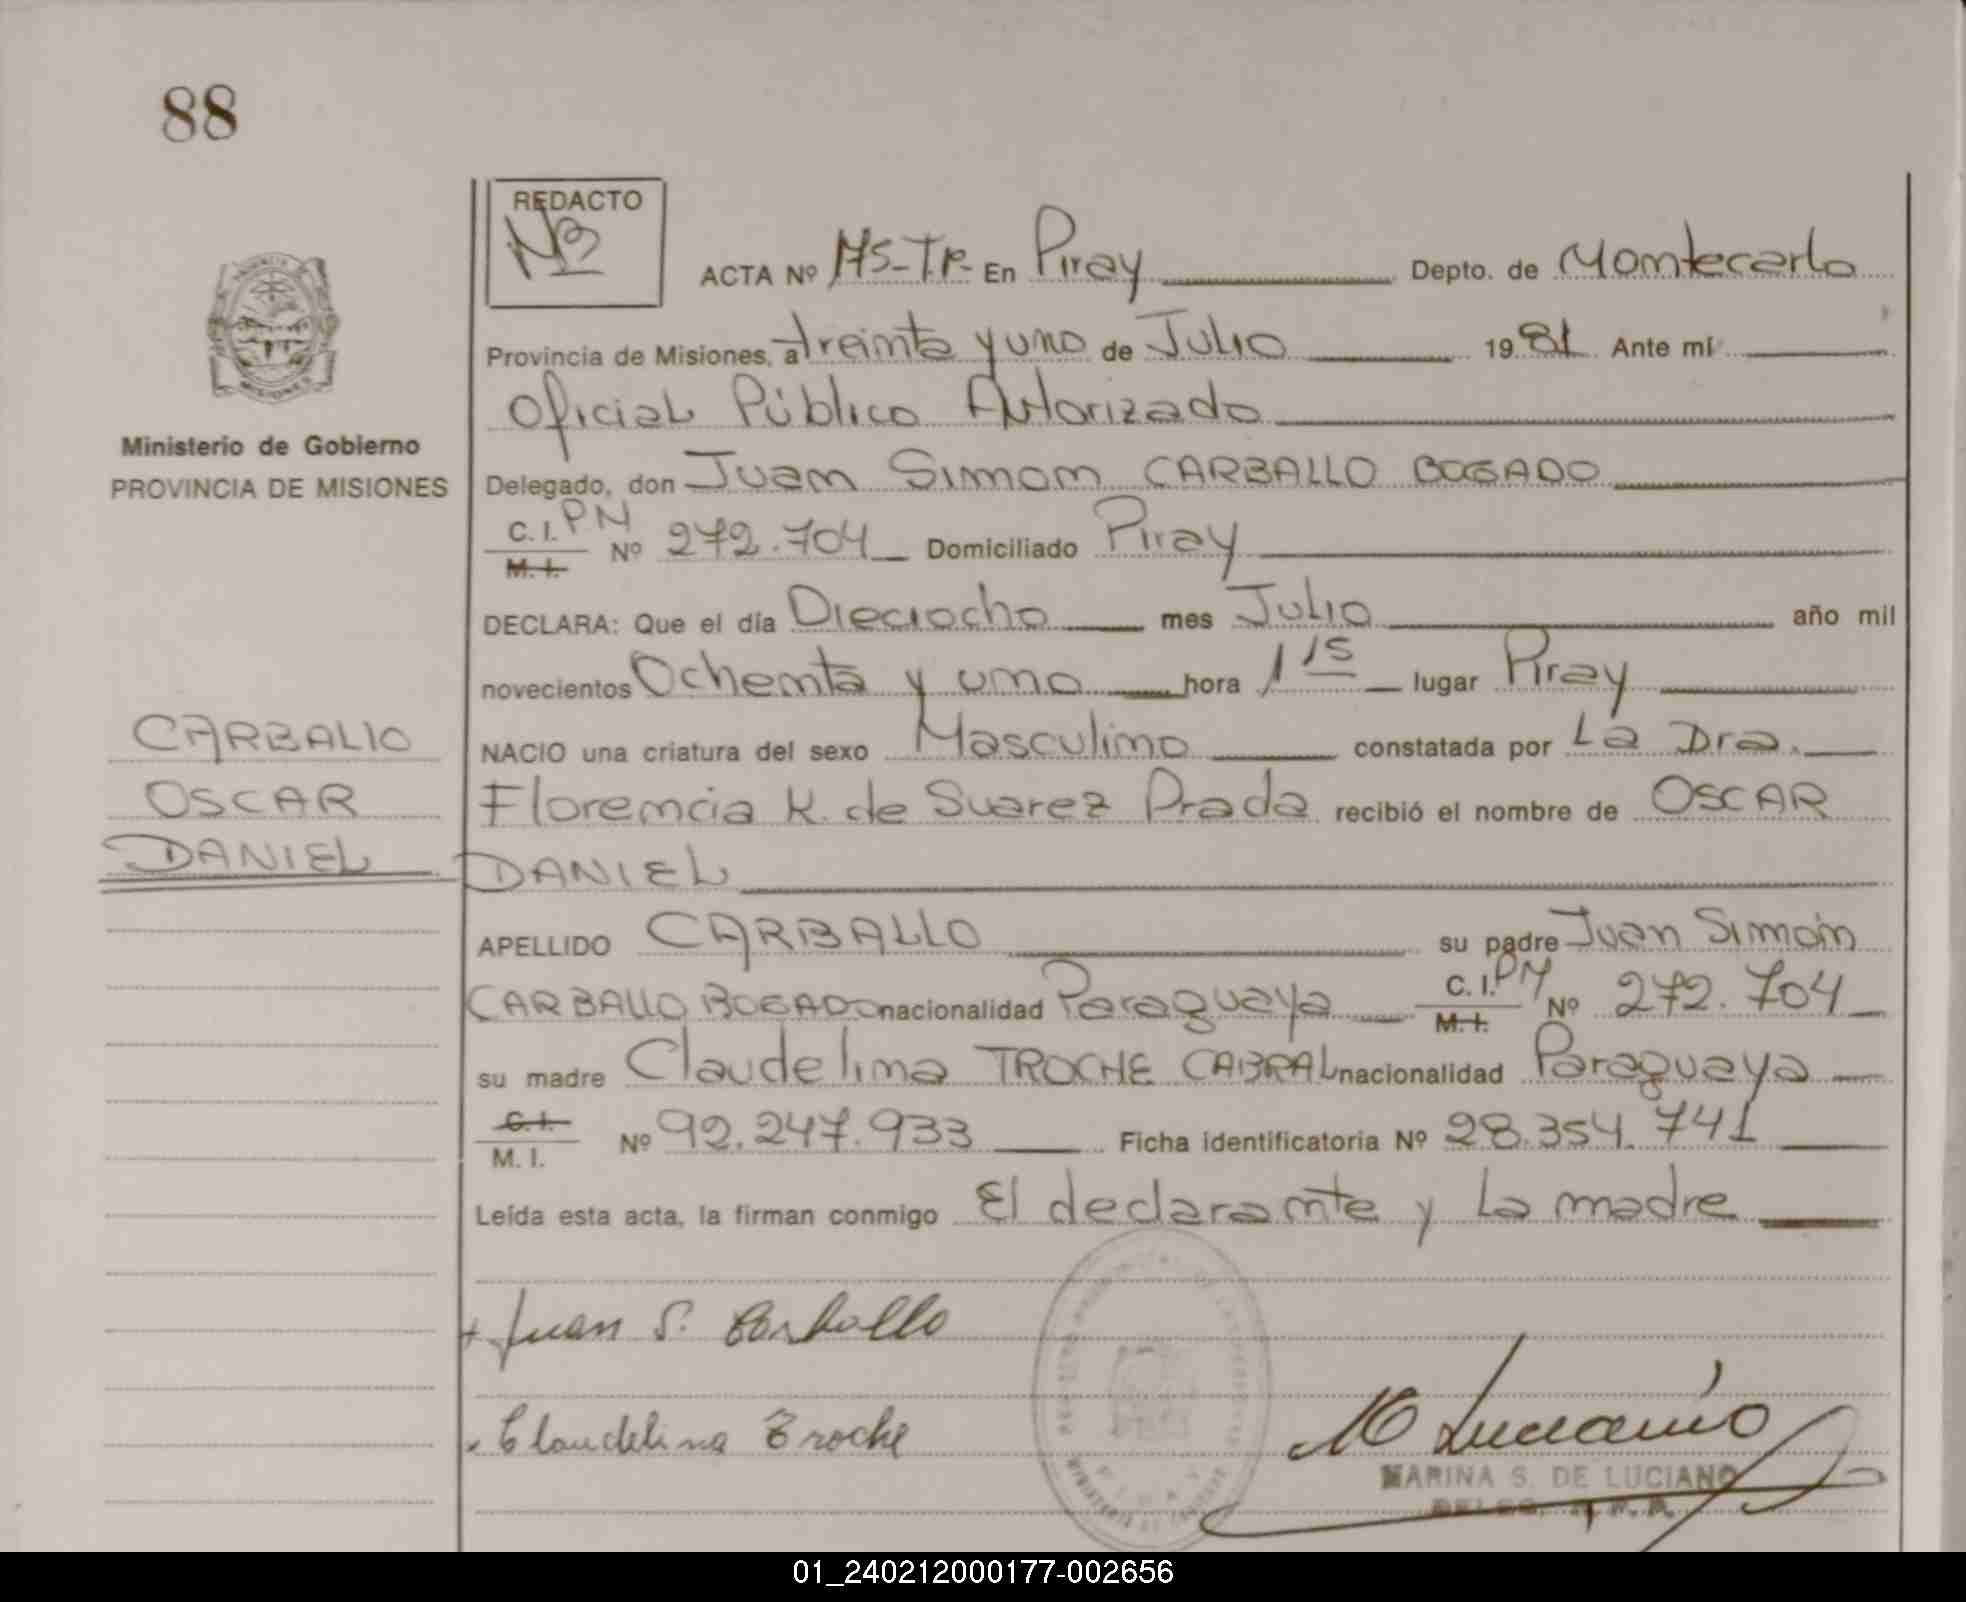 88
REDACTO
ACTA Nº 175-T.P- En Piray Depto. de Montecarlo
Provincia de Misiones, a treinta y uno de Julio 1981 Ante mí
Oficial Público Autorizado
Delegado, don Juan Simon CARBALLO BOGADO
C.I. PM
M. I. Nº 272.704 Domiciliado Piray
DECLARA: Que el día Dieciocho mes Julio año mil
novecientos Ochenta y uno hora 1 15 lugar Piray
NACIO una criatura del sexo Masculino constatada por La Dra.
Florencia K. de Suarez Prada recibió el nombre de OSCAR
DANIEL
APELLIDO CARBALLO su padre Juan Simón
CARBALLO BOGADO nacionalidad Paraguaya C. I. PM
M. I. Nº 272.704
su madre Claudelina TROCHE CABRAL nacionalidad Paraguaya
C. I.
M. I. Nº 92.247.933 Ficha identificatoria Nº 28.354.741
Leída esta acta, la firman conmigo El declarante y La madre
Juan S. Carballo
Claudelina Troche
M Luciano
MARINA S. DE LUCIANO
Ministerio de Gobierno
PROVINCIA DE MISIONES
CARBALLO
OSCAR
DANIEL
01_240212000177-002656